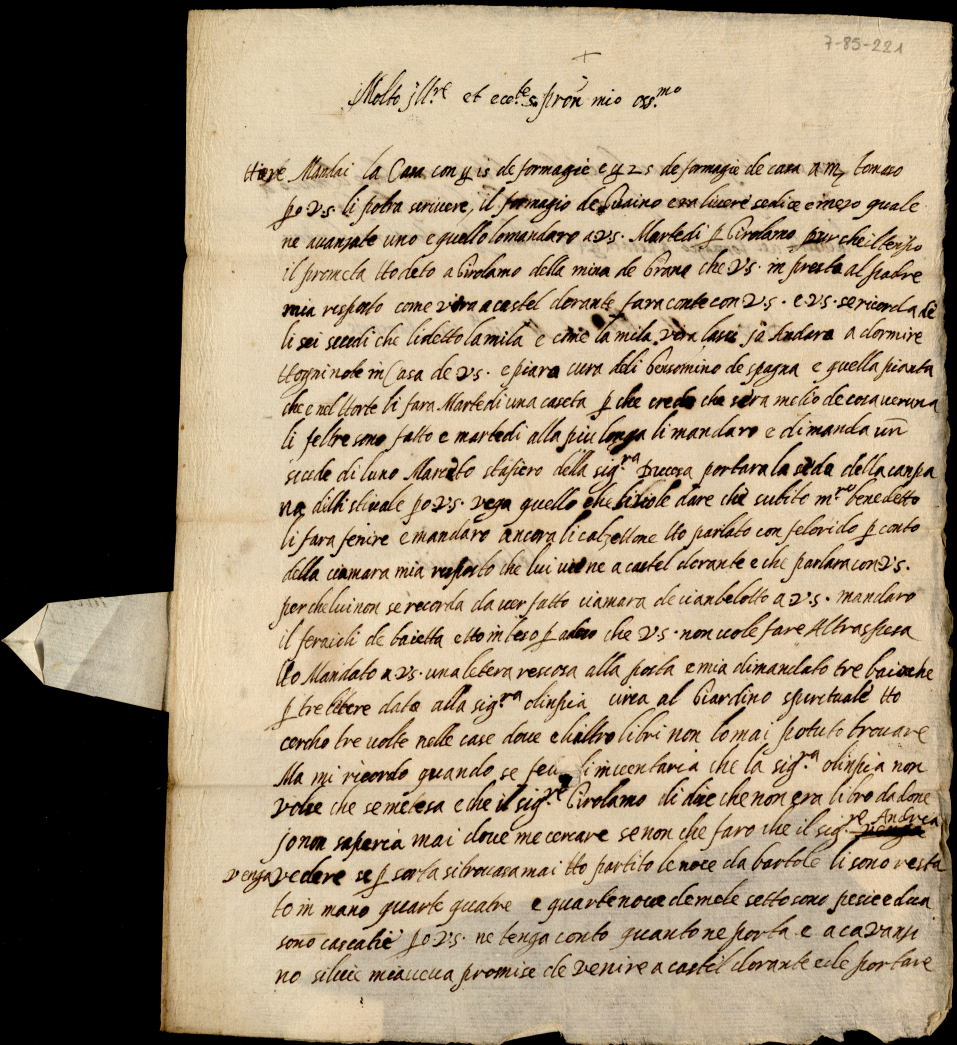 7-85-221
+
Molto Jll.re et ecc.te s.r pron mio oss.mo
Hiere Mandai la Casa con 15 de formagie e 25 de formagie de casa a m. tomaso
po VS. li potra scrivere, il formagio de Guaino era livere sedice e mezo quale
ne avanzate uno e quello lo mandaro a VS. Martedi p Girolamo pur che il tenpo
il prometa Ho deto a Girolamo della mina de Grana che VS. in presta al padre
mia resposto come vera a castel dorante fara conte con VS. e VS. se ricorda de
li sei scudi che li detto la mila e come la mila vera lassi ja Andara a dormire
Hogni note in Casa de VS. e piara cura deli Gensomino de spagna e quella pianta
che e nel Horte li fara Martedi una caseta p che credo che sera melio de cosa veruna
li feltre sono fatto e martedi alla piu longa li mandaro e di manda un
scude di luno Marcito stafiero della sig.ra Ducesa portara la seda della canpa
na delli stivale po VS. vega quello che li vole dare che subito m.ro benedetto
li fara fenire e mandaro ancora li calzettone Ho parlato con felorido p conto
della ciamara mia resposto che lui viene a castel dorante e che parlara con VS.
per che lui non se recorda da ver fatto ciamara de cianbelotto a VS. mandaro
il feraioli de baietta e Ho inteso p adeso che VS. non vole fare Altra spesa
Ho Mandato a VS. una letera rescosa alla posta e mia dimandato tre baioche
p tre letere date alla sig.ra olinpia circa al Giardino spirituale Ho
cercho tre volte nelle case dove e li altro libri non lo mai potuto trovare
Ma mi ricordo quando se feci l inventaria che la sig.ra olinpia non
volse che se metesa e che il sig.re Girolamo di dire che non era libro da done
jo non saperia mai dove me cercare se non che faro che il sig.re Andrea
venga vedere se p sorta si trovasa mai Ho partito le noce da bartole li sono resta
to in mano quarte quatre e quarte nove de mele sette sono pesie e dua
sono cascatie po VS. ne tenga conto quanto ne porta e a ca vanni
no silvie mi aveva promise de venire a castel dorante e de portare